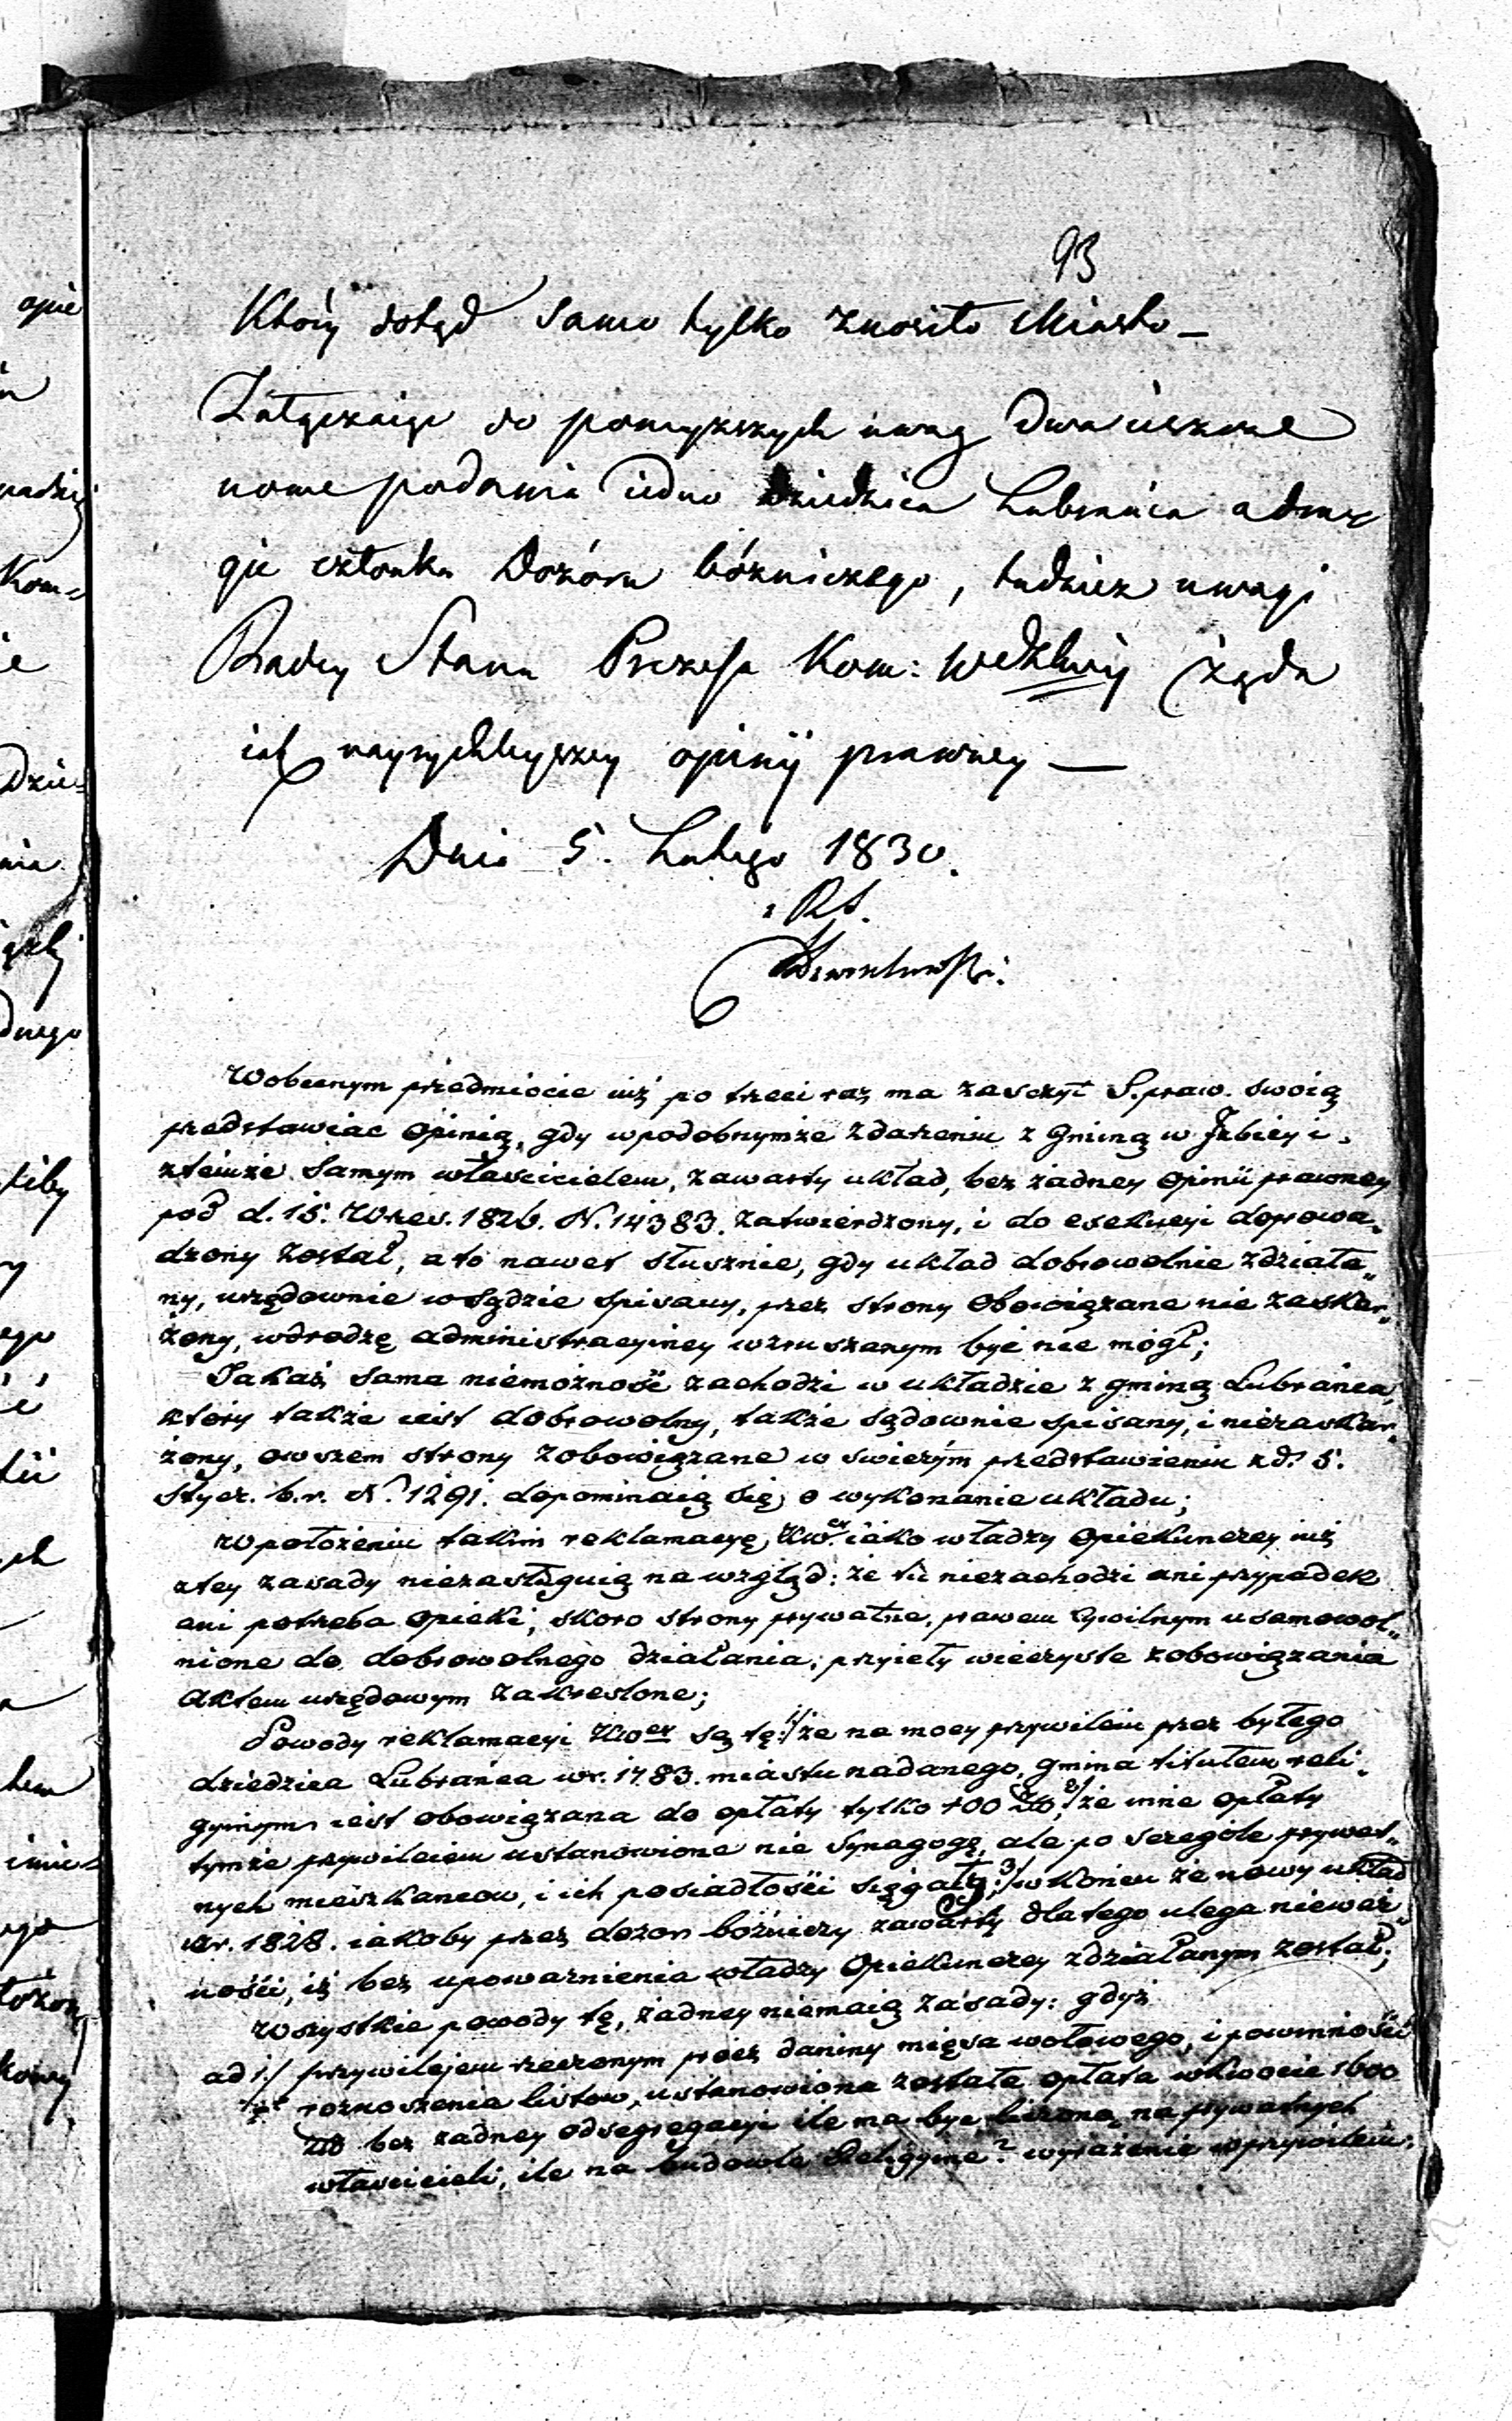 93
Który dotąd samo tylko znosiło Miasto —
Załączaiąc do powyższych uwag dwa ieszcze
nowe podania iedno dziedzica Lubrańca a dru-
gie członka Dozoru bóźniczego, tudzież uwagi
Radcy Stanu Prezesa Kom: Wdzkiey żąda
iak nayrychleyszey opinij prawney —
Dnia 5. Lutego 1830.
RS.
Wobecnym przedmiocie iuż po trzeci raz ma zaszczyt S. praw. swoią
przedstawiać opinią, gdy wpodobnymże zdarzeniu z gminą w Izbicy i
ztemże samym właścicielem, zawarty układ, bez żadney opinii prawney
pod d. 15. Wrześ. 1826. N. 14383. zatwierdzony, i do exekucyi doprowa„
dzony został, a to nawet słusznie, gdy układ dobrowolnie zdziała„
ny, urzędownie w Sądzie spisany, przez strony obowiązane nie zaskar„
żony, wdrodzę administracyiney wzruszanym być nie mógł;
Takaż sama niemożność zachodzi w układzie z gminą Lubrańca,
który także iest dobrowolny, także sądownie spisany, i niezaskar„
żony, owszem strony zobowiązane w swieżym przedstawieniu z d. 5.
Stycz. b.r. N. 1291. dopominaią się o wykonanie układu;
W położeniu takim reklamacyę, KW. iako władzy opiekunczey iuż
ztey zasady niezasługuią na wzgląd: że tu niezachodzi ani przypadek
ani potrzeba opieki, skoro strony prywatne, prawem cywilnym usamowol„
nione do dobrowolnego działania, przyięły wieczyste zobowiązania
aktem urzędowym zakreslone;
Powody reklamacyi KW. są tę: 1/ że na mocy przywileiu przez byłego
dziedzica Lubrańca w r. 1783. miastu nadanego, gmina titułem reli„
giynym iest obowiązana do opłaty tylko 400 Zło, 2/ że inne opłaty
tymże przywileiem ustanowione nie Synagogę, ale po szczególe prywat„
nych mieszkancow, i ich posiadłości sięgały; 3/ wkoncu że nowy układ
w r. 1828. iakoby przez dozor bóżniczy zawarty dlatego ulega nieważ„
ności, iż bez upoważnienia władzy Opiekunczey zdziałanym został;
Wszystkie powody tę, żadney niemaią zasady: gdyż
ad 1/ przywilejem rzeczonym prócz daniny mięsa wołowego, i powinności
roznoszenia listow, ustanowiona została opłata w kwocie 1600
Zło bez żadney odsegregacyi ile ma być liczona na prywatnych
właścicieli, ile na budowle Religyine? wyrażenie w przywileiu,